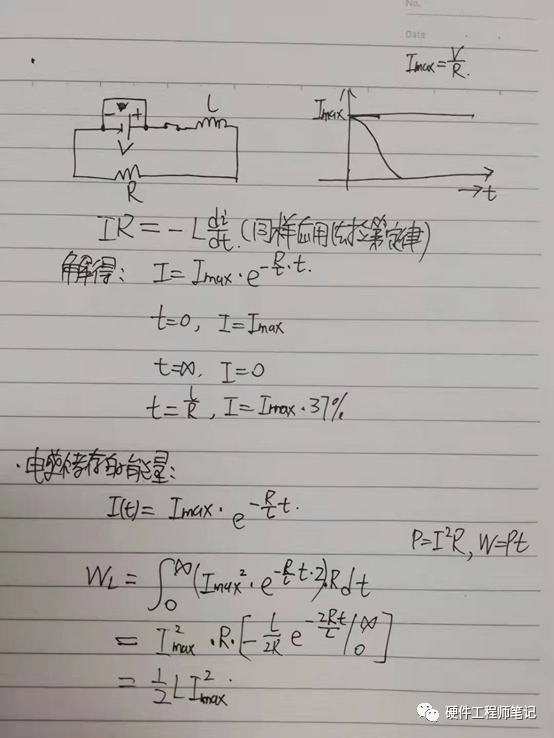 No.
Date
Imax = V/R.
- +
V
L
R
Imax
t
IR = -L di/dt (同样应用法拉第定律)
解得: I = Imax · e^(-R/L · t).
t=0, I=Imax
t=∞, I=0
t=L/R, I=Imax·37%
·电感储存的能量:
I(t) = Imax · e^(-R/L t).
P=I²R, W=Pt
W_L = ∫₀^∞ (Imax² · e^(-R/L t·2))·R dt
= I²max · R · [-L/2R e^(-2Rt/L) |₀^∞]
= 1/2 L I²max.
硬件工程师笔记